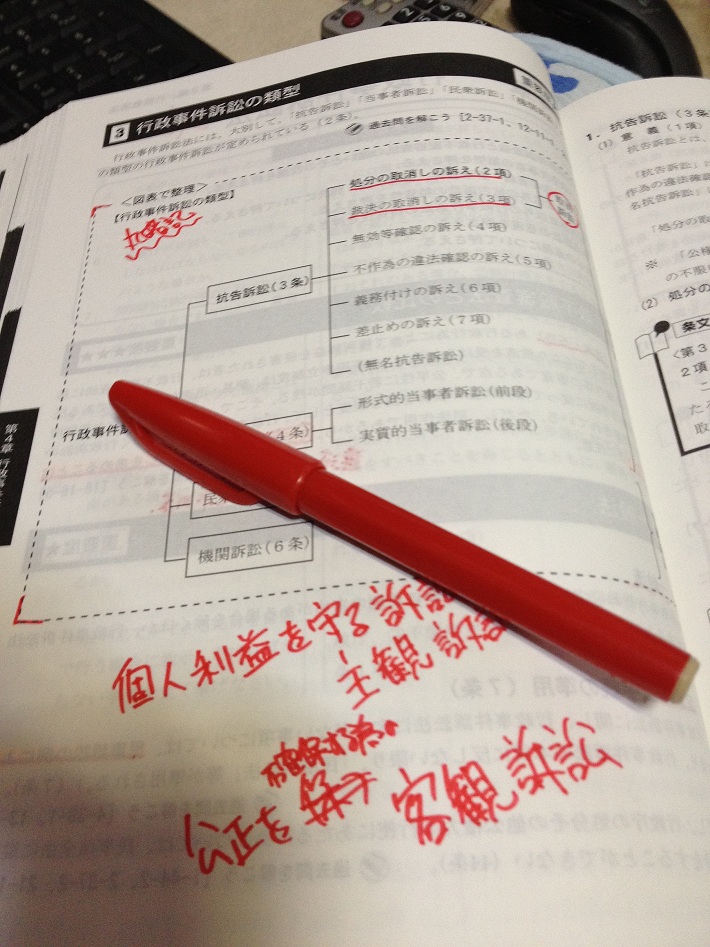 3 行政事件訴訟の類型
行政事件訴訟法には、大別して、「抗告訴訟」「当事者訴訟」「民衆訴訟」「機関
の類型の行政事件訴訟が定められている(2条)。
過去問を解こう [2-37-1、12-11-1、
<図表で整理>
【行政事件訴訟の類型】
丸暗記
処分の取消しの訴え(2項)
裁決の取消しの訴え(3項)
無効等確認の訴え(4項)
不作為の違法確認の訴え(5項)
抗告訴訟(3条)
義務付けの訴え(6項)
差止めの訴え(7項)
(無名抗告訴訟)
形式的当事者訴訟(前段)
行政事件
4条)
実質的当事者訴訟(後段)
民
機関訴訟(6条)
個人利益を守る訴訟
主観訴訟
確保する為の
客観訴訟
1. 抗告訴訟(3条
(1) 意義(1項)
抗告訴訟とは、
「抗告訴訟」
作為の違法確認
名抗告訴訟」
「処分の取
※ 「公権
の不服
(2) 処分の
条文
<第3
2項
こ
たる
取
第4章 行政事件